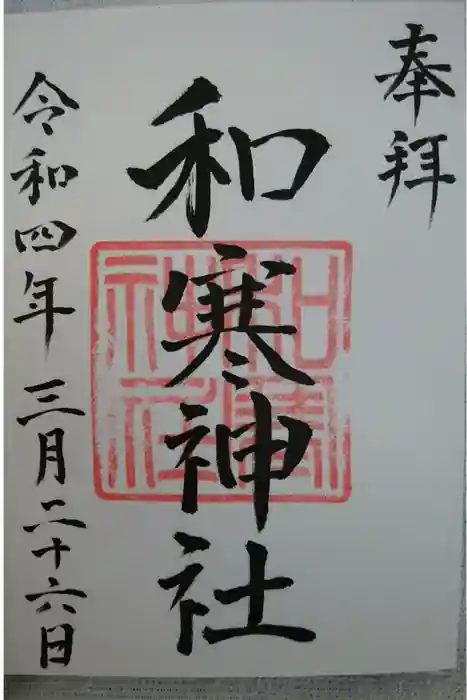 奉拝
和寒神社
令和四年三月二十六日
和寒神社